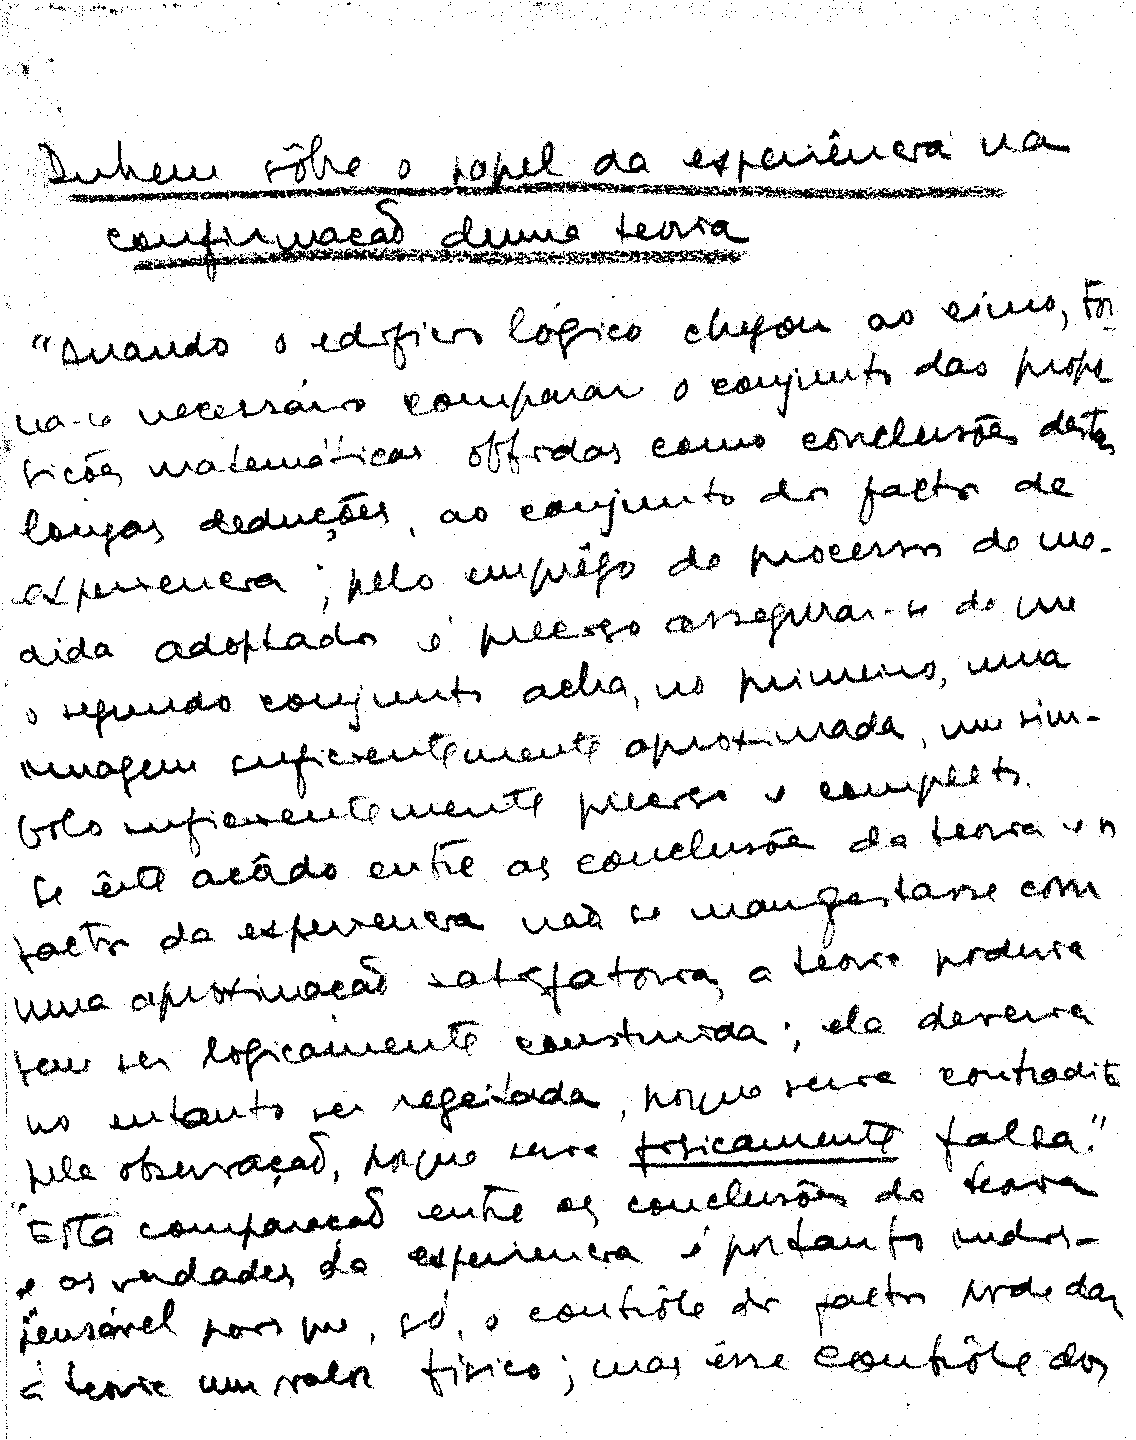 Duhem sôbre o papel da experiência na
confirmação duma teoria
"Quando o edifício lógico chegou ao cimo, tor
na-se necessário comparar o conjunto das propo
sições matemáticas obtidas como conclusões destas
longas deduções, ao conjunto dos factos de
experiencia; pelo emprêgo do processos de me-
dida adoptados é preciso assegurar-se de que
o segundo conjunto acha, no primeiro, uma
imagem suficientemente aproximada, um sim-
bolo suficientemente preciso e completo.
Se êste acôrdo entre as conclusões da teoria e os
factos da experiencia não se manifestasse com
uma aproximação satisfatoria, a teoria poderia
bem ser logicamente construida; ela deveria
no entanto ser regeitada, porque seria contradita
pela observação, porque seria fisicamente falsa."
"Esta comparação entre as conclusões da teoria
e as verdades da experiencia é portanto indis-
pensável pois que, só, o contrôle dos factos pode dar
á teoria um valor fisico; mas êsse contrôle dos